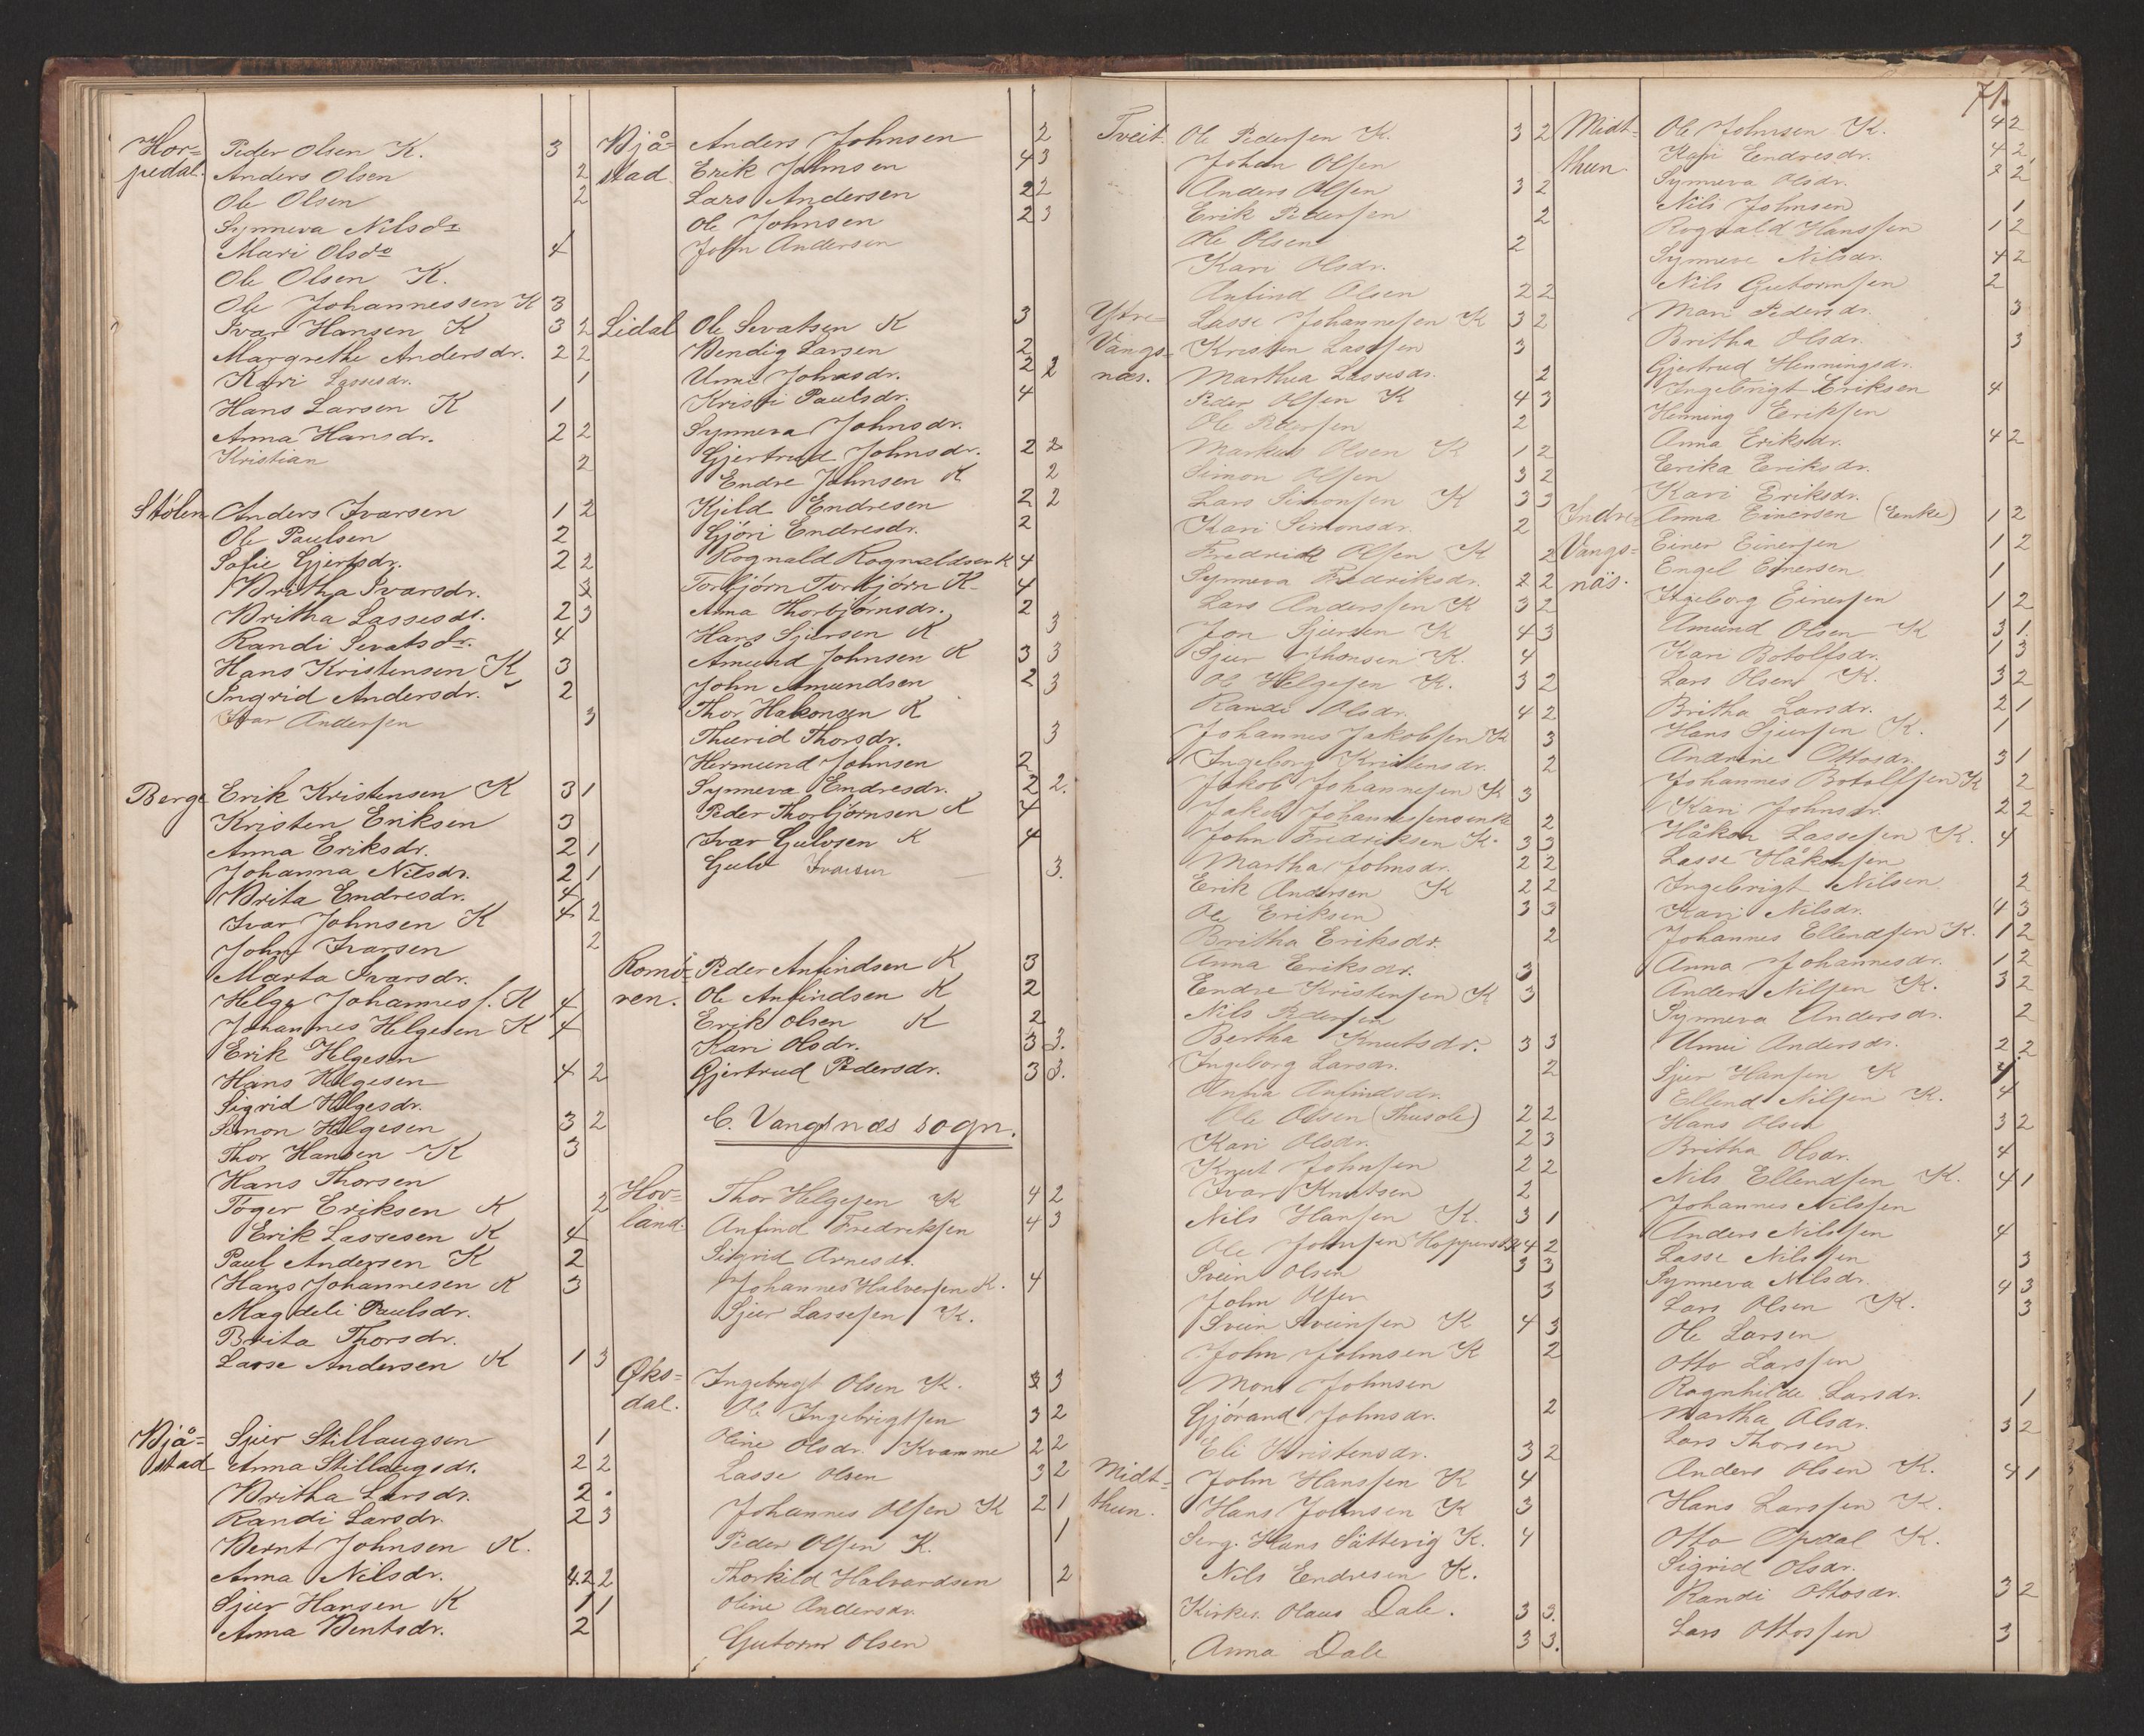 Hor= Peder Olsen K. 3
pedal. Anders Olsen 2
Ole Olsen 2
Synneva Nilsdr
Mari Olsdr 4
Ole Olsen K.
Ole Johannessen K 3
Ivar Hansen K 3 2
Margrethe Andersdr. 2 2
Kari Lassesdr. 1
Hans Larsen K 1
Anna Hansdr. 2 2
Kristian 2
Stølen Anders Ivarsen 1 2
Ole Paulsen 2
Sofie Gjertsdr. 2 2
Britha Ivarsdr. 3
Britha Lassesdr. 2 3
Randi Sevatsdr. 4
Hans Kristensen K 3
Ingrid Andersdr. 2
Ivar Andersen 3
Berge Erik Kristensen K 3 1
Kristen Eriksen 3
Anna Eriksdr. 2 1
Johanna Nilsdr. 2 1
Brita Endresdr. 4
Ivar Johnsen K 4 2
John Ivarsen 2
Marta Ivarsdr.
Helge Johannes f. K 4
Johannes Helgesen K 4
Erik Helgesen
Hans Helgesen 4 2
Sigrid Helgesdr.
Simon Helgesen 3 2
Thor Hansen K 3
Hans Thorsen
Töger Eriksen K 2
Erik Lassesen K 4
Paul Andersen K 2
Hans Johannesen K 3
Magdeli Paulsdr.
Brita Thorsdr.
Lasse Andersen K 1 3
Bjå= Sjur Stillaugsen 1
stad Anna Stillaugsdr. 2 2
Britha Larsdr. 2.
Randi Larsdr. 2 3
Bernt Johnsen K.
Anna Nilsdr. 4.2 2
Sjur Hansen K 1 1
Anna Bentsdr. 2
Bjå= Anders Johnsen 2
stad Erik Johnsen 4 3
Lars Andersen 2 2
Ole Johnsen 2 3
John Andersen
Lidal Ole Sevatsen K 3
Bendig Larsen 2
Unni Johnsdr. 2 2
Kristi Paulsdr. 4
Synneva Johnsdr.
Gjertrud Johnsdr. 2 2
Endre Johnsen K 2
Kjeld Endresen 2 2
Gjöri Endresdr. 2
Rognald Rognaldsen K 4
Torbjörn Torbjörn K. 4
Anna Thorbjørnsdr. 2
Hans Sjursen K 3
Amund Johnsen K 3 3
John Amundsen 2 3
Thor Hakonsen K
Thurid Thorsdr. 3
Hermund Johnsen 2
Synneva Endresdr. 2 2.
Peder Thorbjörnsen K 4
Ivar Gulvsen K 4
Gulv Ivarsen 3.
Romö= Peder Anfindsen K 3
ren. Ole Anfindsen K 2
Erik Olsen K 2
Kari Olsdr. 3 3.
Gjertrud Pedersdr. 3 3.
C. Vangsnæs sogn.
Hov= Thor Helgesen K 4 2
land. Anfind Fredriksen 4 3
Sigrid Arnesdr.
Johannes Halvorsen K. 4
Sjur Lassesen K.
Øks= Ingebrigt Olsen K. 3 3
dal. Ole Ingebrigtsen 3 2
Oline Olsdr. Kvamme 2 2
Lasse Olsen 3 2
Johannes Olsen K 2 1
Peder Olsen K. 1
Thorkild Halvardsen 2
Oline Andersdr.
Gutorm Olsen
71.
Tveit. Ole Pedersen K. 3 2
Johan Olsen
Anders Olsen 3 2
Erik Pedersen 2
Ole Olsen 2
Kari Olsdr.
Anfind Olsen 2 2
Ytre= Lasse Johannesen K 3 2
Vangs= Kristen Lassesen 3
næs. Marthea Lassesdr. 2
Peder Olsen K 4 3
Ole Pedersen 2
Markus Olsen K 1 2
Simon Olsen 3 2
Lars Simonsen K 3 3
Kari Simonsdr. 2
Fredrik Olsen K 2
Synneva Fredriksdr. 2 2
Lars Anderssen K 3 2
Jon Sjursen K 4 3
Sjur Johnsen K. 4
Ole Helgesen K. 3 2
Randi Olsdr. 4 2
Johannes Jakobsen K 3
Ingeborg Kristensdr. 2
Jakob Johannesen K 3
Jakob Johannesens enke 2
John Fredriksen K. 3 3
Martha Johnsdr. 2 2
Erik Andersen K 2 2
Ole Eriksen 3 3
Britha Eriksdr. 2
Anna Eriksdr. 3
Endre Kristensen K 3
Nils Pedersen
Bertha Knutsdr. 3 3
Ingeborg Larsdr. 2
Anna Anfindsdr.
Ole Olsen (Thusole) 2 2
Kari Olsdr. 2 3
Knut Johnsen 2 2
Ivar Knutsen 2
Nils Hansen K. 3 1
Ole Johnsen Hopperstad 4 2
Svein Olsen 3 3
John Olsen 3
Svein Sveinsen K 4 3
John Johnsen K 2
Mons Johnsen
Gjörand Johnsdr. 2
Eli Kristensdr. 3 2
Midt= John Hanssen K 4
thun. Hans Johnsen K 3
Serg. Hans Sättevig K. 4
Nils Endresen K.
Kirkes. Olaus Dale. 3 3.
Anna Dale 3 3.
Midt= Ole Johnsen K. 4 2
thun. Kari Eendresdr. 4 2
Synneva Olsdr. 2 2
Nils Johnsen 1
Rognald Hanssen 1 2
Synneve Nilsdr. 4 2
Nils Gutormsen 2
Mari Pedersdr. 3
Britha Olsdr. 3
Gjertrud Henningsdr.
Ingebrigt Eriksen 4
Henning Eriksen
Anna Eriksdr. 4 2
Erika Eriksdr.
Kari Eriksdr.
Indre= Anna Einersen (Enke) 1 2
Vangs= Einer Einersen 1 2
näs. Engel Einersen 1
Ingeborg Einersen 1 2
Amund Olsen K 3 1.
Kari Botolfsdr. 1 3
Lars Olsen K. 3 2
Britha Larsdr. 2 1
Hans Sjursen K. 1
Andrine Ottosdr. 3 1
Johannes Botolfsen K 2
Kari Johnsdr. 2 2
Håkon Lassesen K. 4
Lasse Håkonsen
Ingebrigt Nilsen 2
Kari Nilsdr. 4 3
Johannes Ellendsen K. 1 2
Anna Johannesdr. 1 2
Anders Nilsen K. 3 2
Synneva Andersdr. 2
Unni Andersdr. 2 2
Sjur Hansen K 4
Ellend Nilsen K. 4
Hans Olsen 3 2
Britha Olsdr. 4
Nils Ellendsen K. 4 1
Johannes Nilssen
Anders Nilssen 4
Lasse Nilssen 3
Synneva Nilsdr. 4 3
Lars Olsen K. 3
Ole Larsen
Otto Larssen
Ragnhilde Larsdr. 1
Martha Olsdr. 3 2
Lars Thorsen
Anders Olsen K. 4 1
Hans Larssen K.
Otto Opdal K.
Sigrid Olsdr.
Randi Ottosdr. 3 2
Lars Ottossen 3